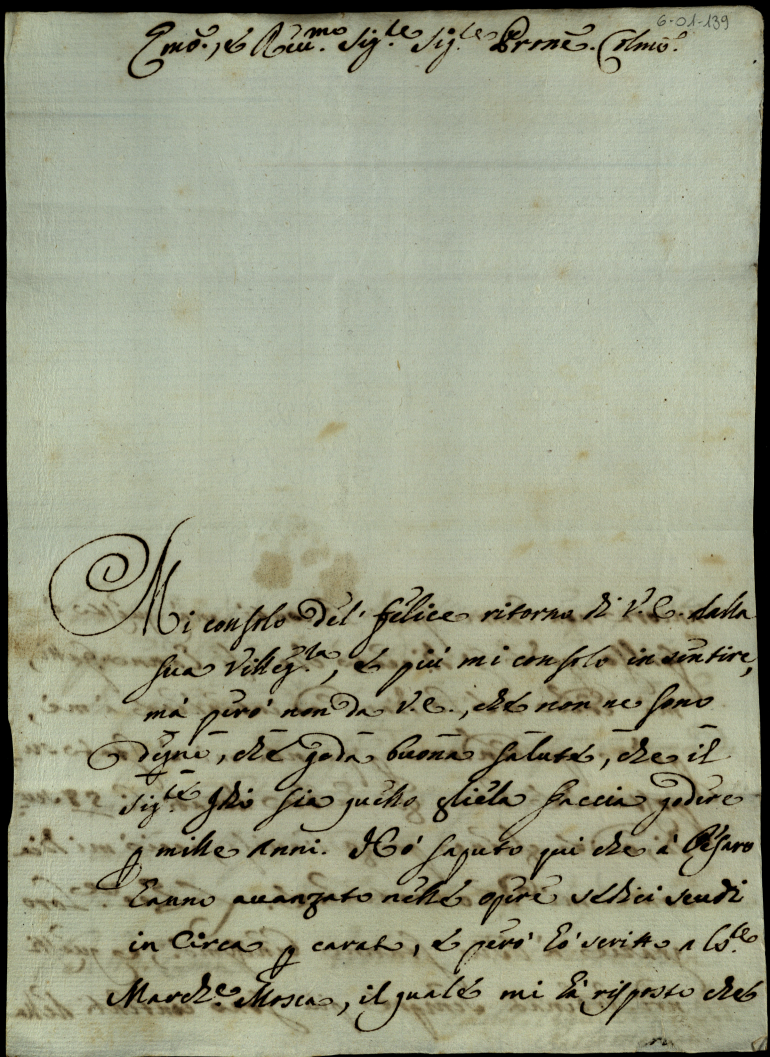 6-01-139
Emo., e Reu.mo Sig.re Sig.re Prone. Colmo.
Mi consolo del' felice ritorno di V.E. dalla
sua Villeg.ra, e più mi consolo in sentire,
mà però non da V.E., che non ne sono
degno, che goda buona salute, che il
Sig.re Iddio sia quello gliela faccia godere
p mille Anni. Hò saputo qui che à Pesaro
hanno auanzato nelle opere sedici scudi
in Circa p carato, e però hò scritto a
March.e Mosca, il quale mi hà risposto che